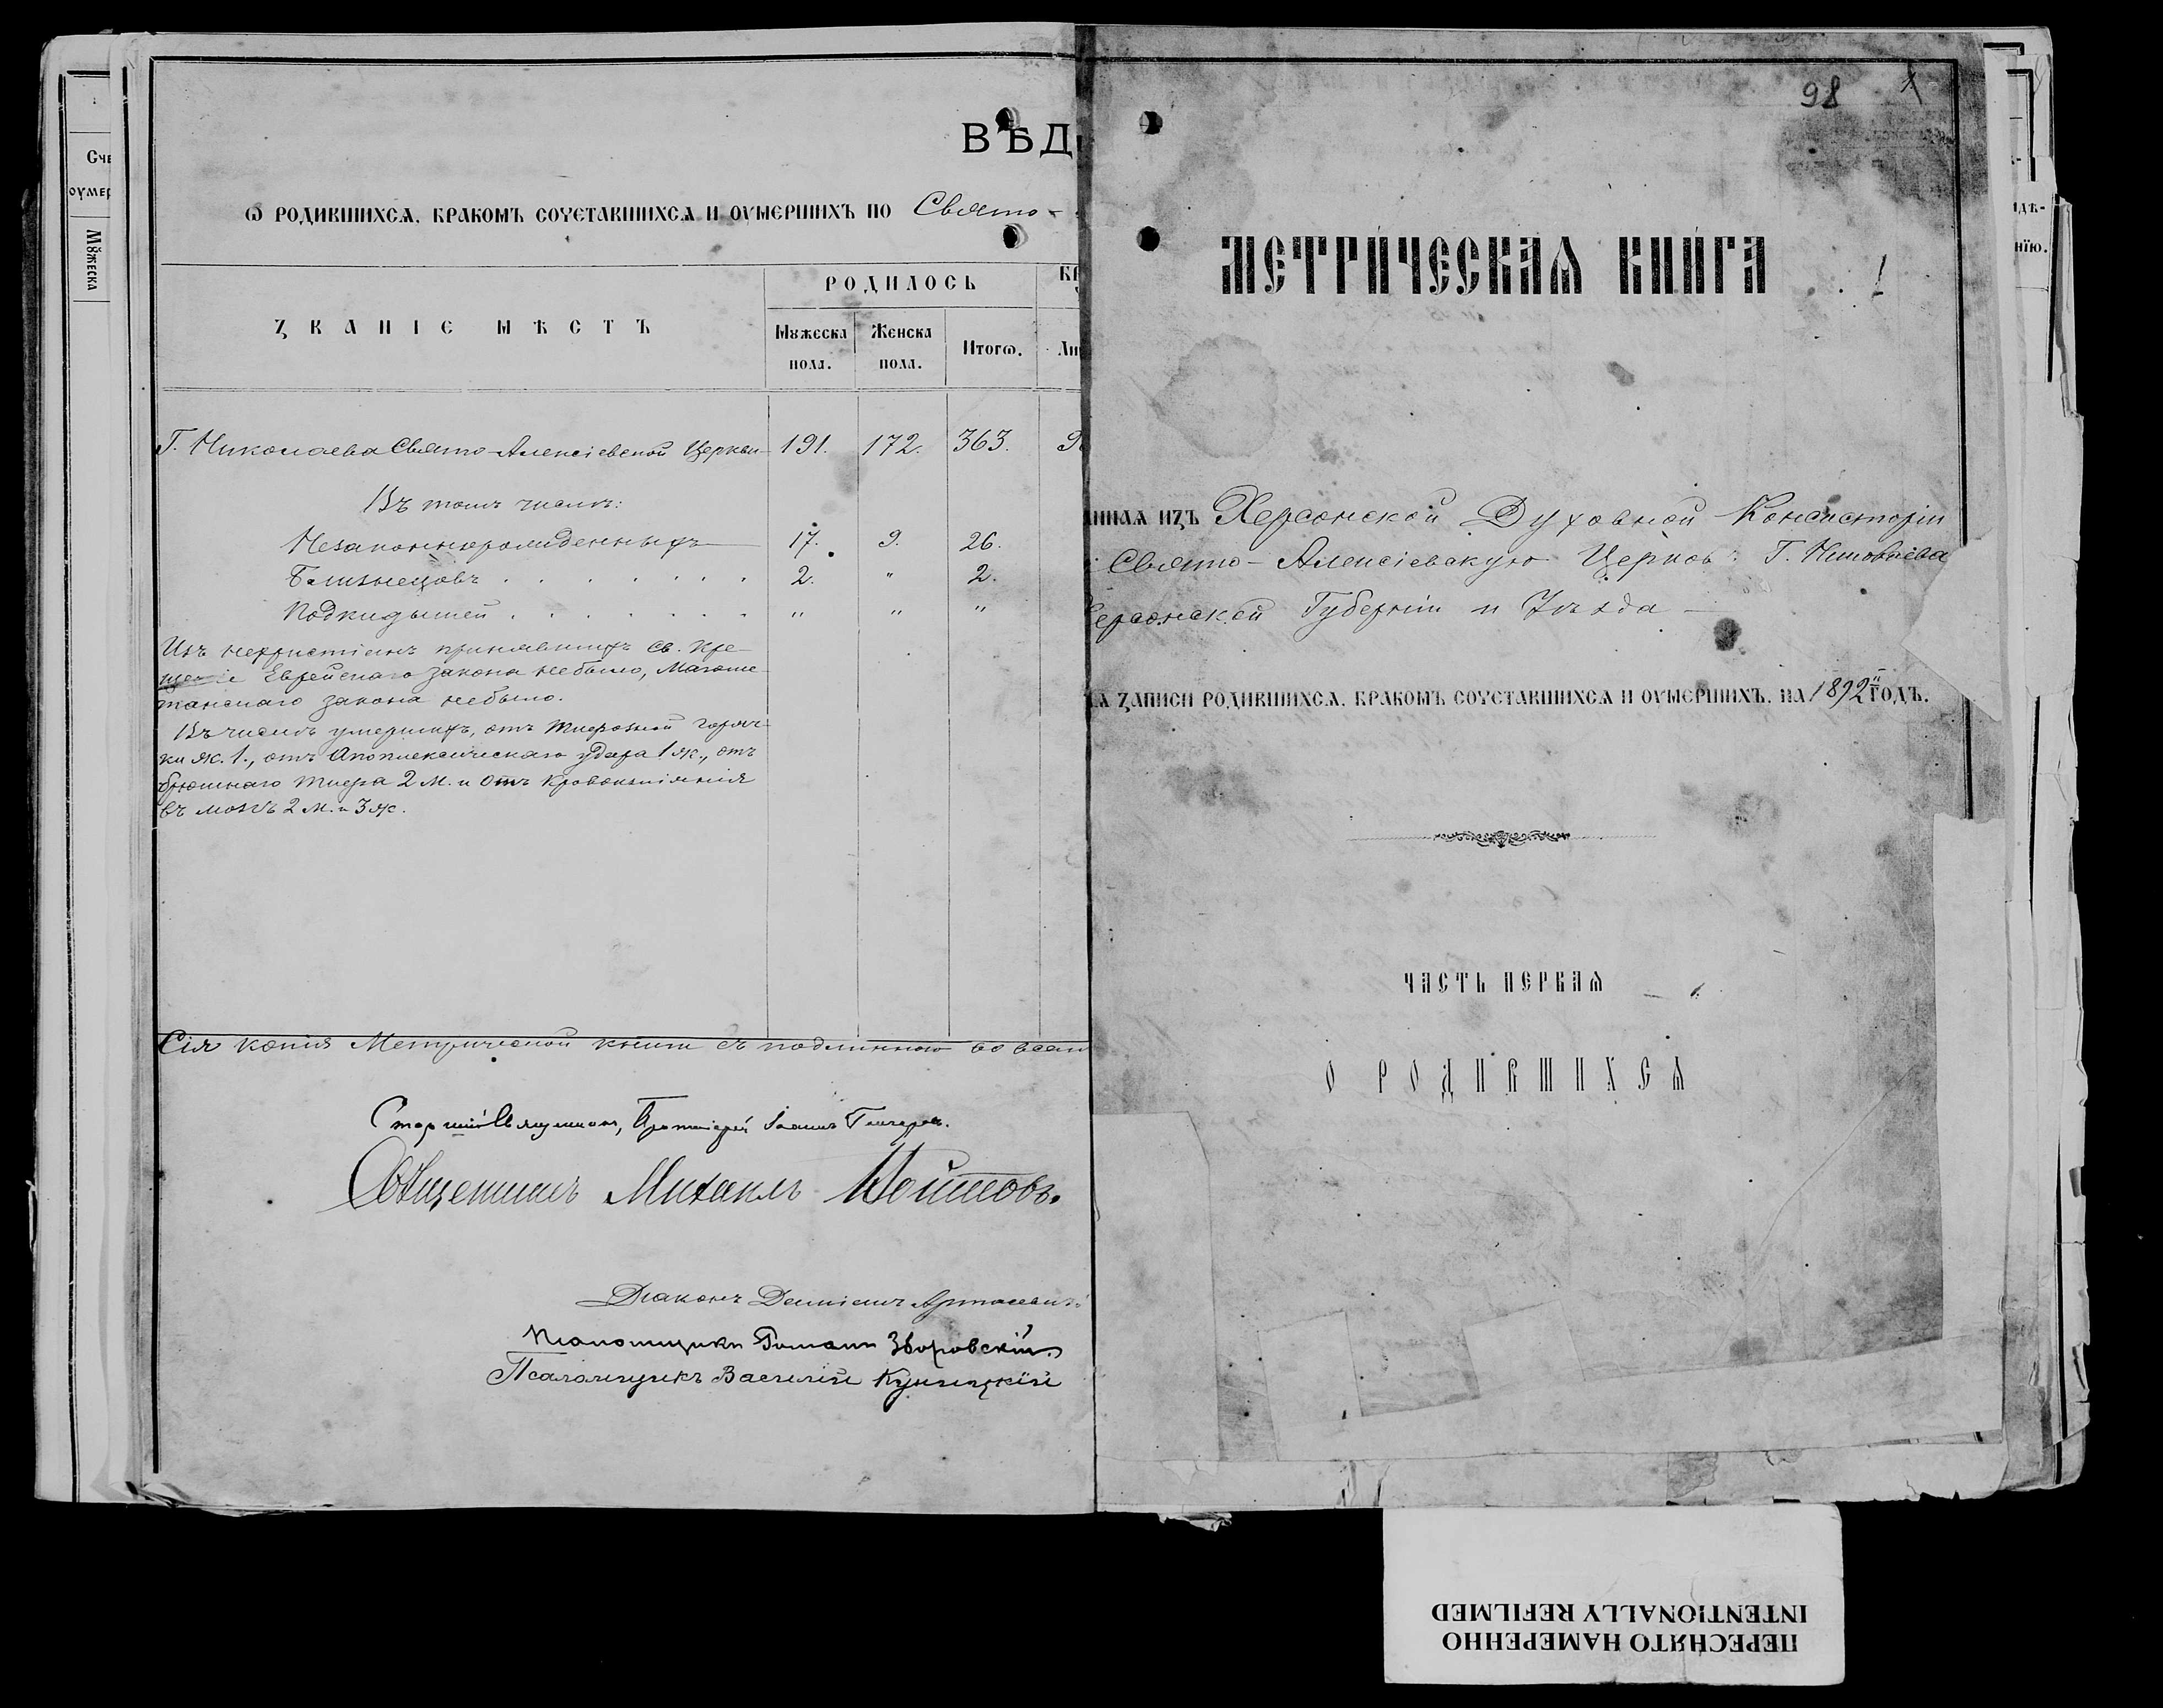 Сче
оумер
Мꙋжеска
ВѢД
Ѡ РОДИВШИХСѦ, БРАКОМЪ СОЧЕТАВШИХСѦ И ОУМЕРШИХЪ ПО Свято-
ЗВАНІЕ МѢСТЪ
РОДИЛОСЬ
Мꙋжеска пола.
Женска пола.
Итогѡ.
Г. Николаева Свято-Алексіевской Церкви 191. 172. 363.
Въ томъ числѣ:
Незаконнорожденныхъ 17. 9. 26.
Близнецовъ . . . . . . . 2. " 2.
Подкидышей . . . . . . . " " "
Изъ нехристіанъ принявшихъ Св. Кре-
щеніе Еврейскаго закона небыло, Магоме-
танскаго закона небыло.
Въ числѣ умершихъ, отъ Тифозной горяч-
ки ж. 1., отъ Апоплексическаго удара 1 ж., отъ
брюшнаго тифа 2 м. и отъ кровоизліянія
въ мозгъ 2 м. и 3 ж.
Сія копія Метрической книги съ подлинною во всем
Старшій Священникъ, Протоіерей Іоаннъ
Священникъ Михаилъ
Діаконъ
Псаломщикъ Романъ Зборовскій
Псаломщикъ Василій Куницкій
98
МЕТРИЧЕСКАѦ КНИГА
1
ннаѧ изъ Херсонской Духовной Консисторіи
Свято-Алексіевскую Церковь Г. Николаева
Херсонской Губерніи и Уѣзда
ЗАПИСИ РОДИВШИХСѦ, БРАКОМЪ СОЧЕТАВШИХСѦ И ОУМЕРШИХЪ, НА 1892й ГОДЪ.
ЧАСТЬ ПЕРВАѦ
О РОДИВШИХСѦ
нїю.
ПЕРЕСНЯТО НАМЕРЕННО
INTENTIONALLY REFILMED